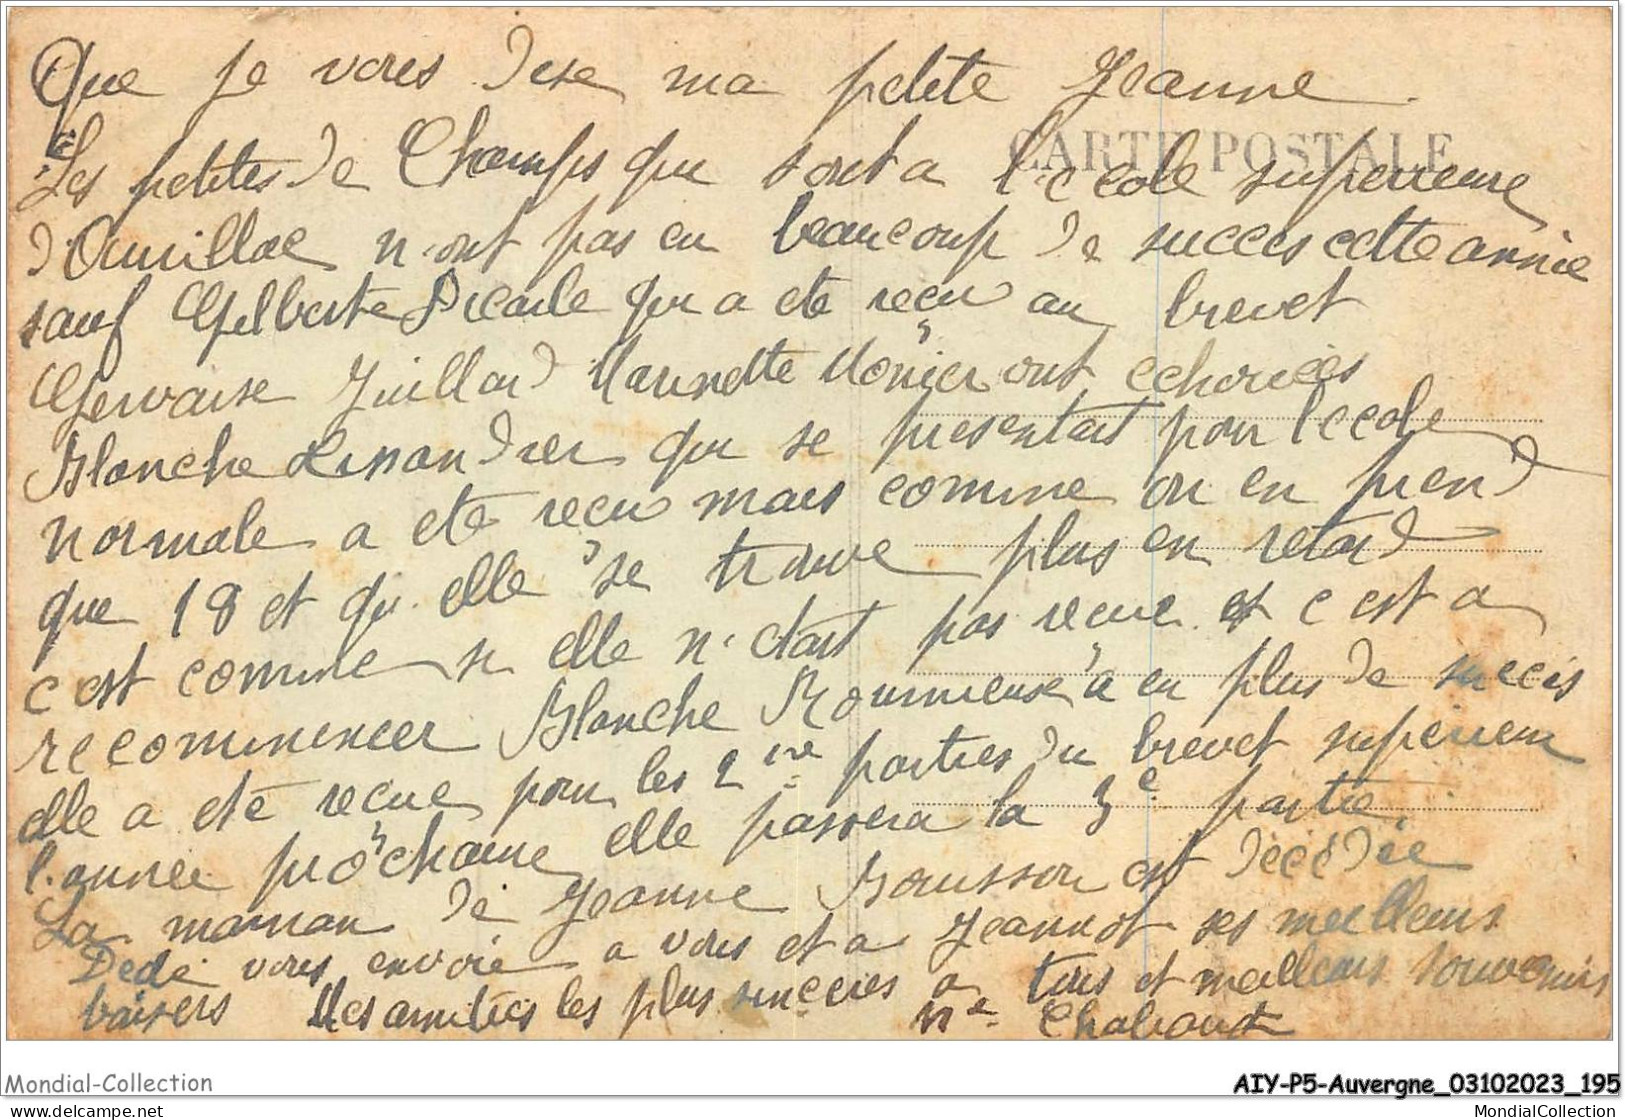 Que je vous dise ma petite Jeanne.
CARTE POSTALE
Les petites de Champs qui sont a l'ecole superieure
d'Aurillac n'ont pas eu beaucoup de succes cette année
sauf Gilberte Picarle qui a ete reçu au brevet
Gervaise Juillard Marinette Monier ont echouées
Blanche Lissandrier qui se presentait pour l'ecole
normale a eté reçu mais comme on en prend
que 18 et qu'elle se trouve plus en retard
c est comme si elle n'etait pas reçue et c est a
recommencer Blanche Roumieuse a eu plus de succès
elle a eté reçue pour les 2 1re parties du brevet supérieur
l'année prochaine elle passera la 3e partie.
La maman de Jeanne Bouisson est décédée
Dedé vous envoie a vous et a Jeannot ses meilleurs
baisers Mes amitiés les plus sinceres a tous et meilleurs souvenirs
Chabaud
Mondial-Collection
AIY-P5-Auvergne_03102023_195
MondialCollection
www.delcampe.net
MondialCollection